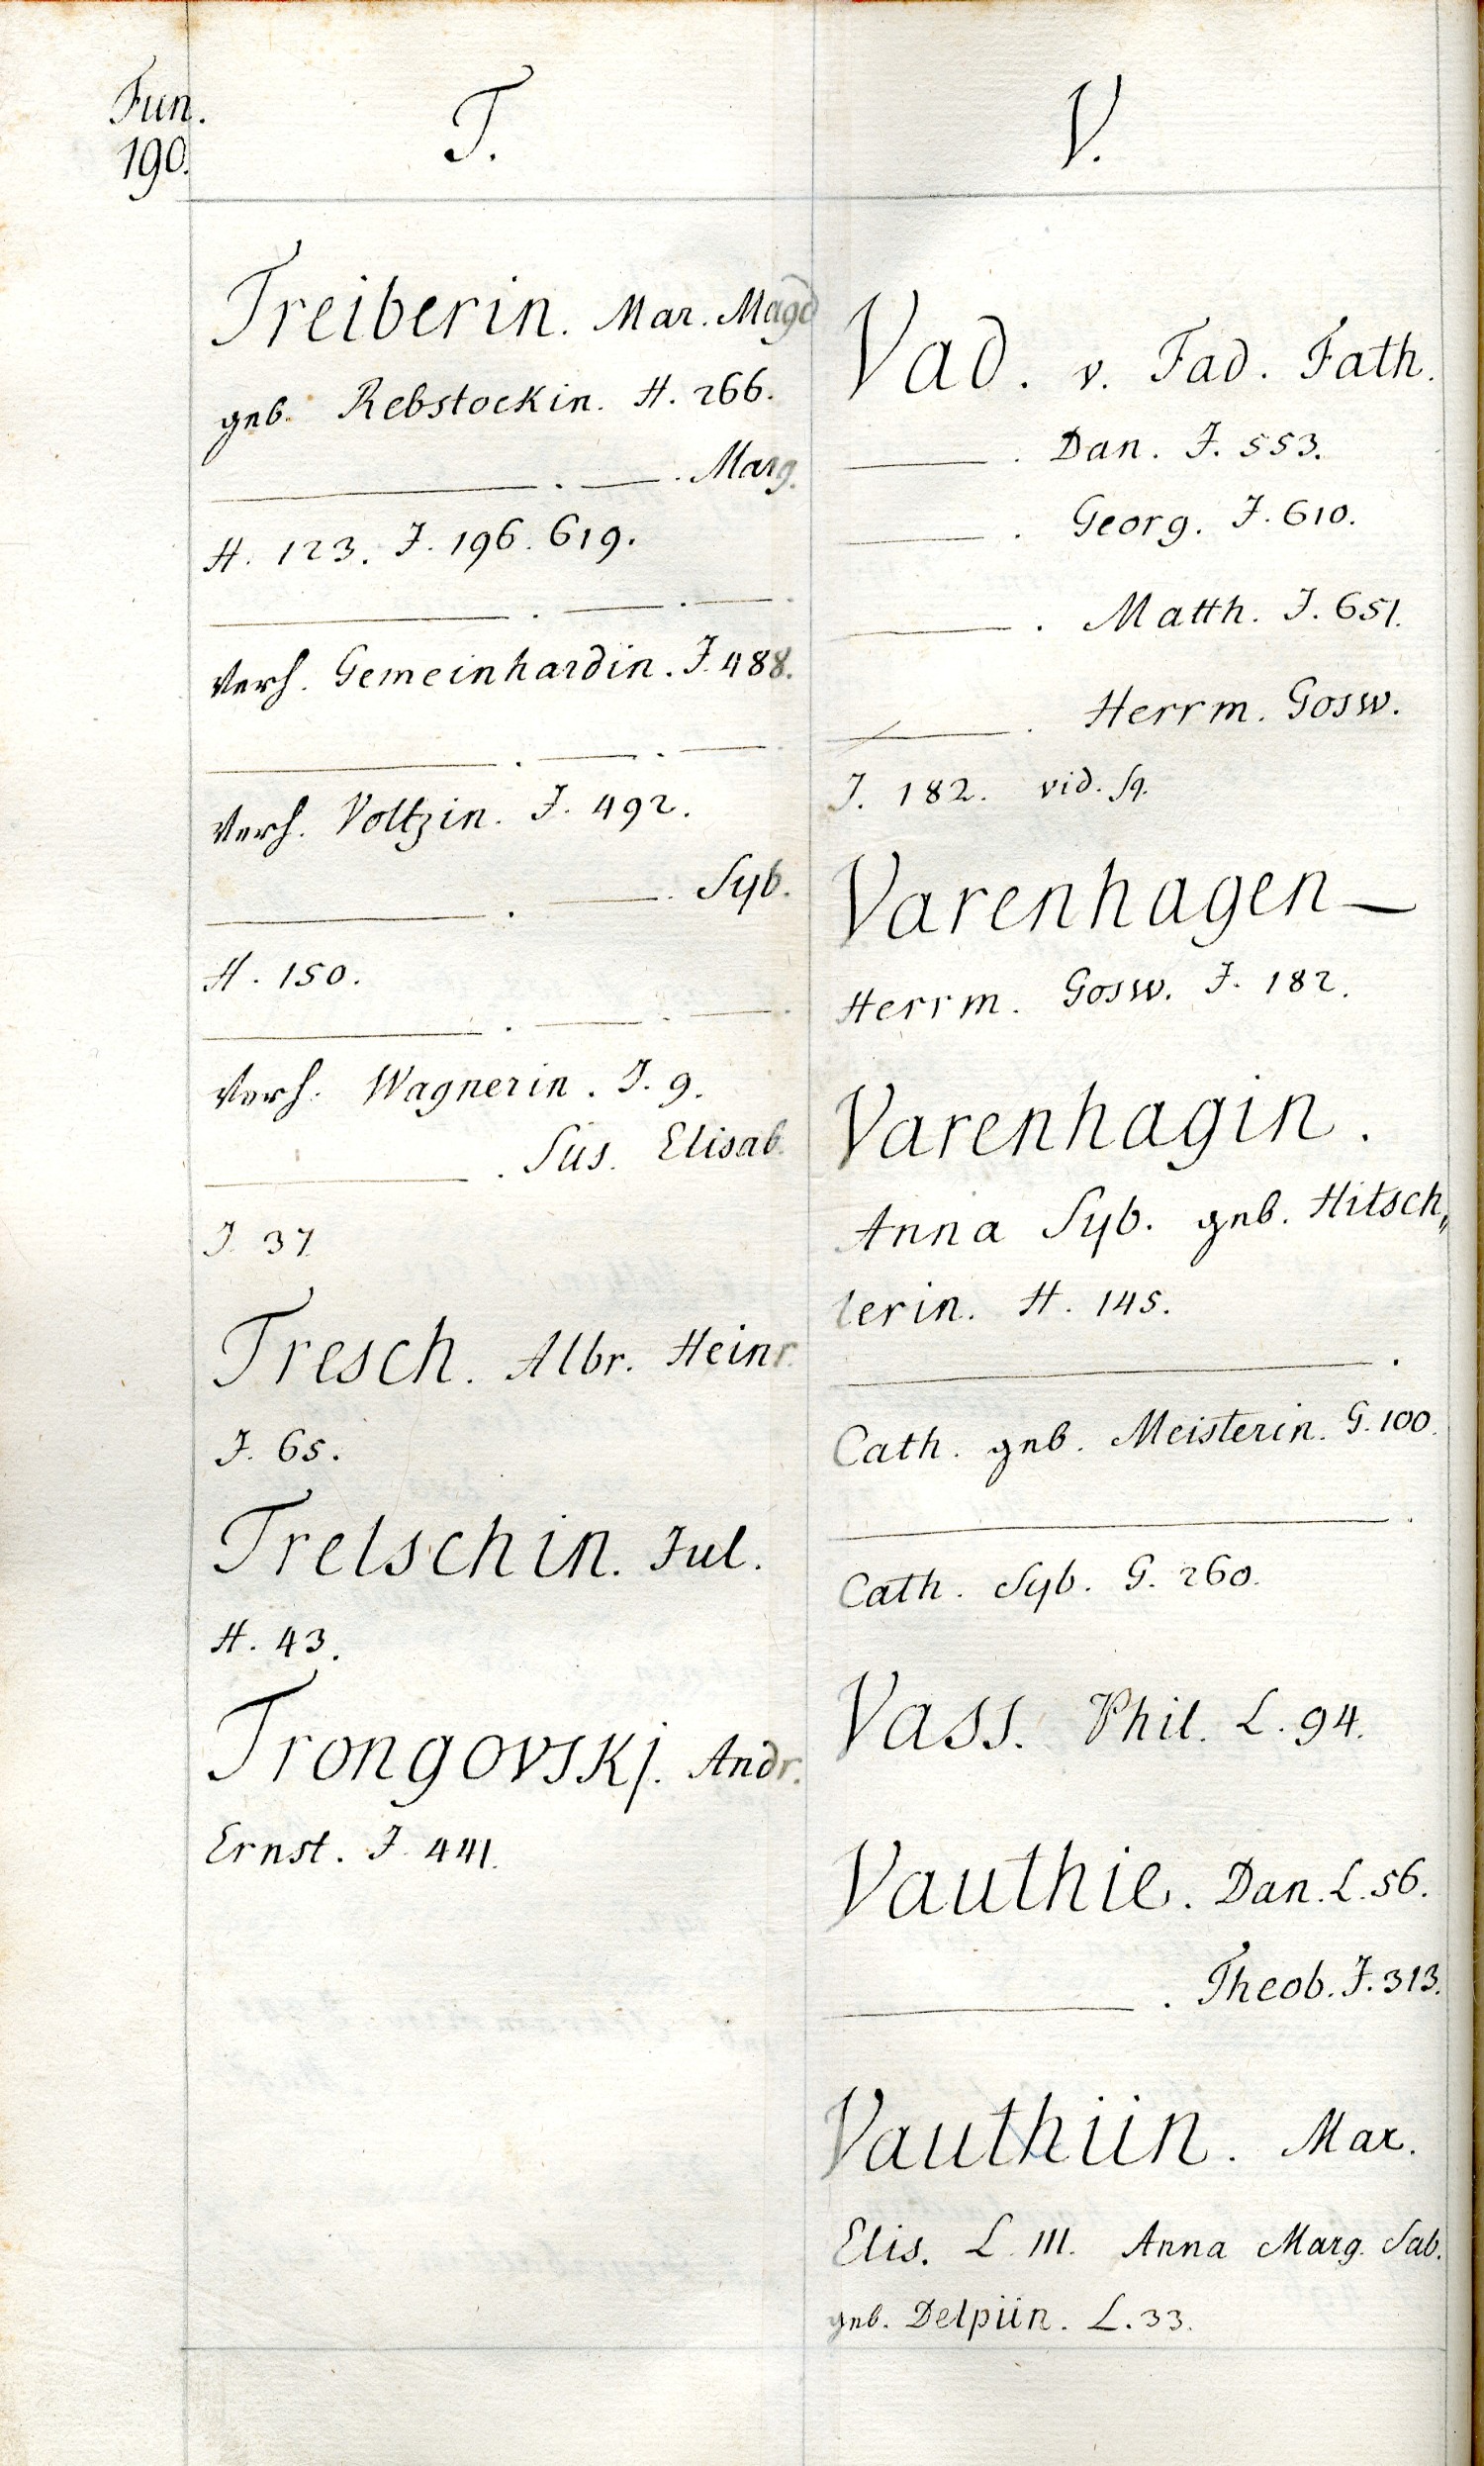 Fun.
190.
T.
Treiberin. Mar. Magd
geb. Rebstockin. H. 266.
———. ——. Marg.
H. 123. J. 196. 619.
———. ——. ——.
verh. Gemeinhardin. J. 488.
———. ——. ——
verh. Voltzin. J. 492.
———. ——. Syb.
H. 150.
———. ——. ——.
verh. Wagnerin. J. 9.
———. Sus. Elisab.
J. 37.
Tresch. Albr. Heinr.
J. 65.
Trelschin. Jul.
H. 43.
Trongovskj. Andr.
Ernst. J. 441.
V.
Vad. v. Fad. Fath.
———. Dan. J. 553.
———. Georg. J. 610.
———. Matth. J. 651.
———. Herrm. Gosw.
J. 182. vid. sq.
Varenhagen—
Herrm. Gosw. J. 182.
Varenhagin.
Anna Syb. geb. Hitsch„
lerin. H. 145.
———.
Cath. geb. Meisterin. G. 100.
———.
Cath. Syb. G. 260.
Vass. Phil. L. 94.
Vauthie. Dan. L. 56.
———. Theob. J. 313.
Vauthiin. Mar.
Elis. L. 111. Anna Marg. Sab.
geb. Delpiin. L. 33.